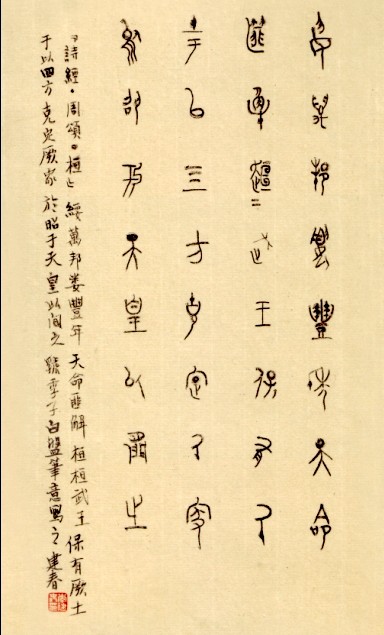 綏萬邦婁豐年天命
匪解桓=武王保有厥
土以四方克定厥家
於昭于天皇以間之
《詩經·周頌·桓》綏萬邦婁豐年 天命匪解 桓桓武王 保有厥土
于以四方克定厥家 於昭于天皇以间之 虢季子白盤筆意寫之 建春